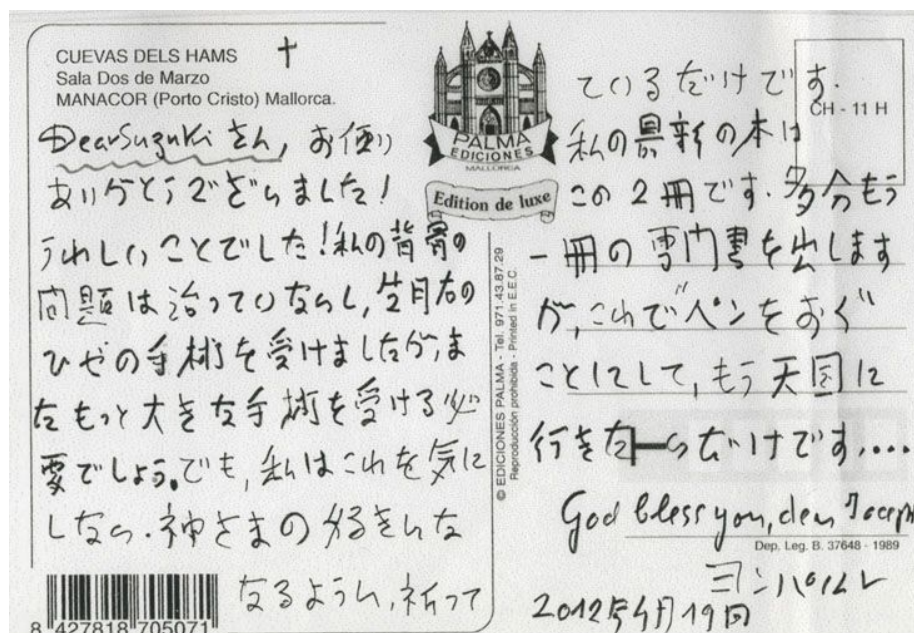 CUEVAS DELS HAMS
Sala Dos de Marzo
MANACOR (Porto Cristo) Mallorca.
Dear Suzuki さん, お便り
ありがとうございました!
うれしいことでした!私の背骨の
問題は治っていないし,
ひざの手術を受けましたが,ま
たもっと大きな手術を受ける必
要でしょう。でも,私はこれを気に
しない.神さまの好きな
なるように,祈って
8 427818 705071
PALMA
EDICIONES
MALLORCA
Edition de luxe
© EDICIONES PALMA - Tel. 971.43.87.29
Reproducción prohibida - Printed in E.E.C.
CH - 11 H
ているだけです.
私の最新の本は
この2冊です.多分もう
一冊の専門書を出します
が,これで"ペンをおく"
ことにして,もう天国に
行きたいだけです....
God bless you, dear Joseph
Dep. Leg. B. 37648 - 1989
ヨンパルト
2012年4月19日